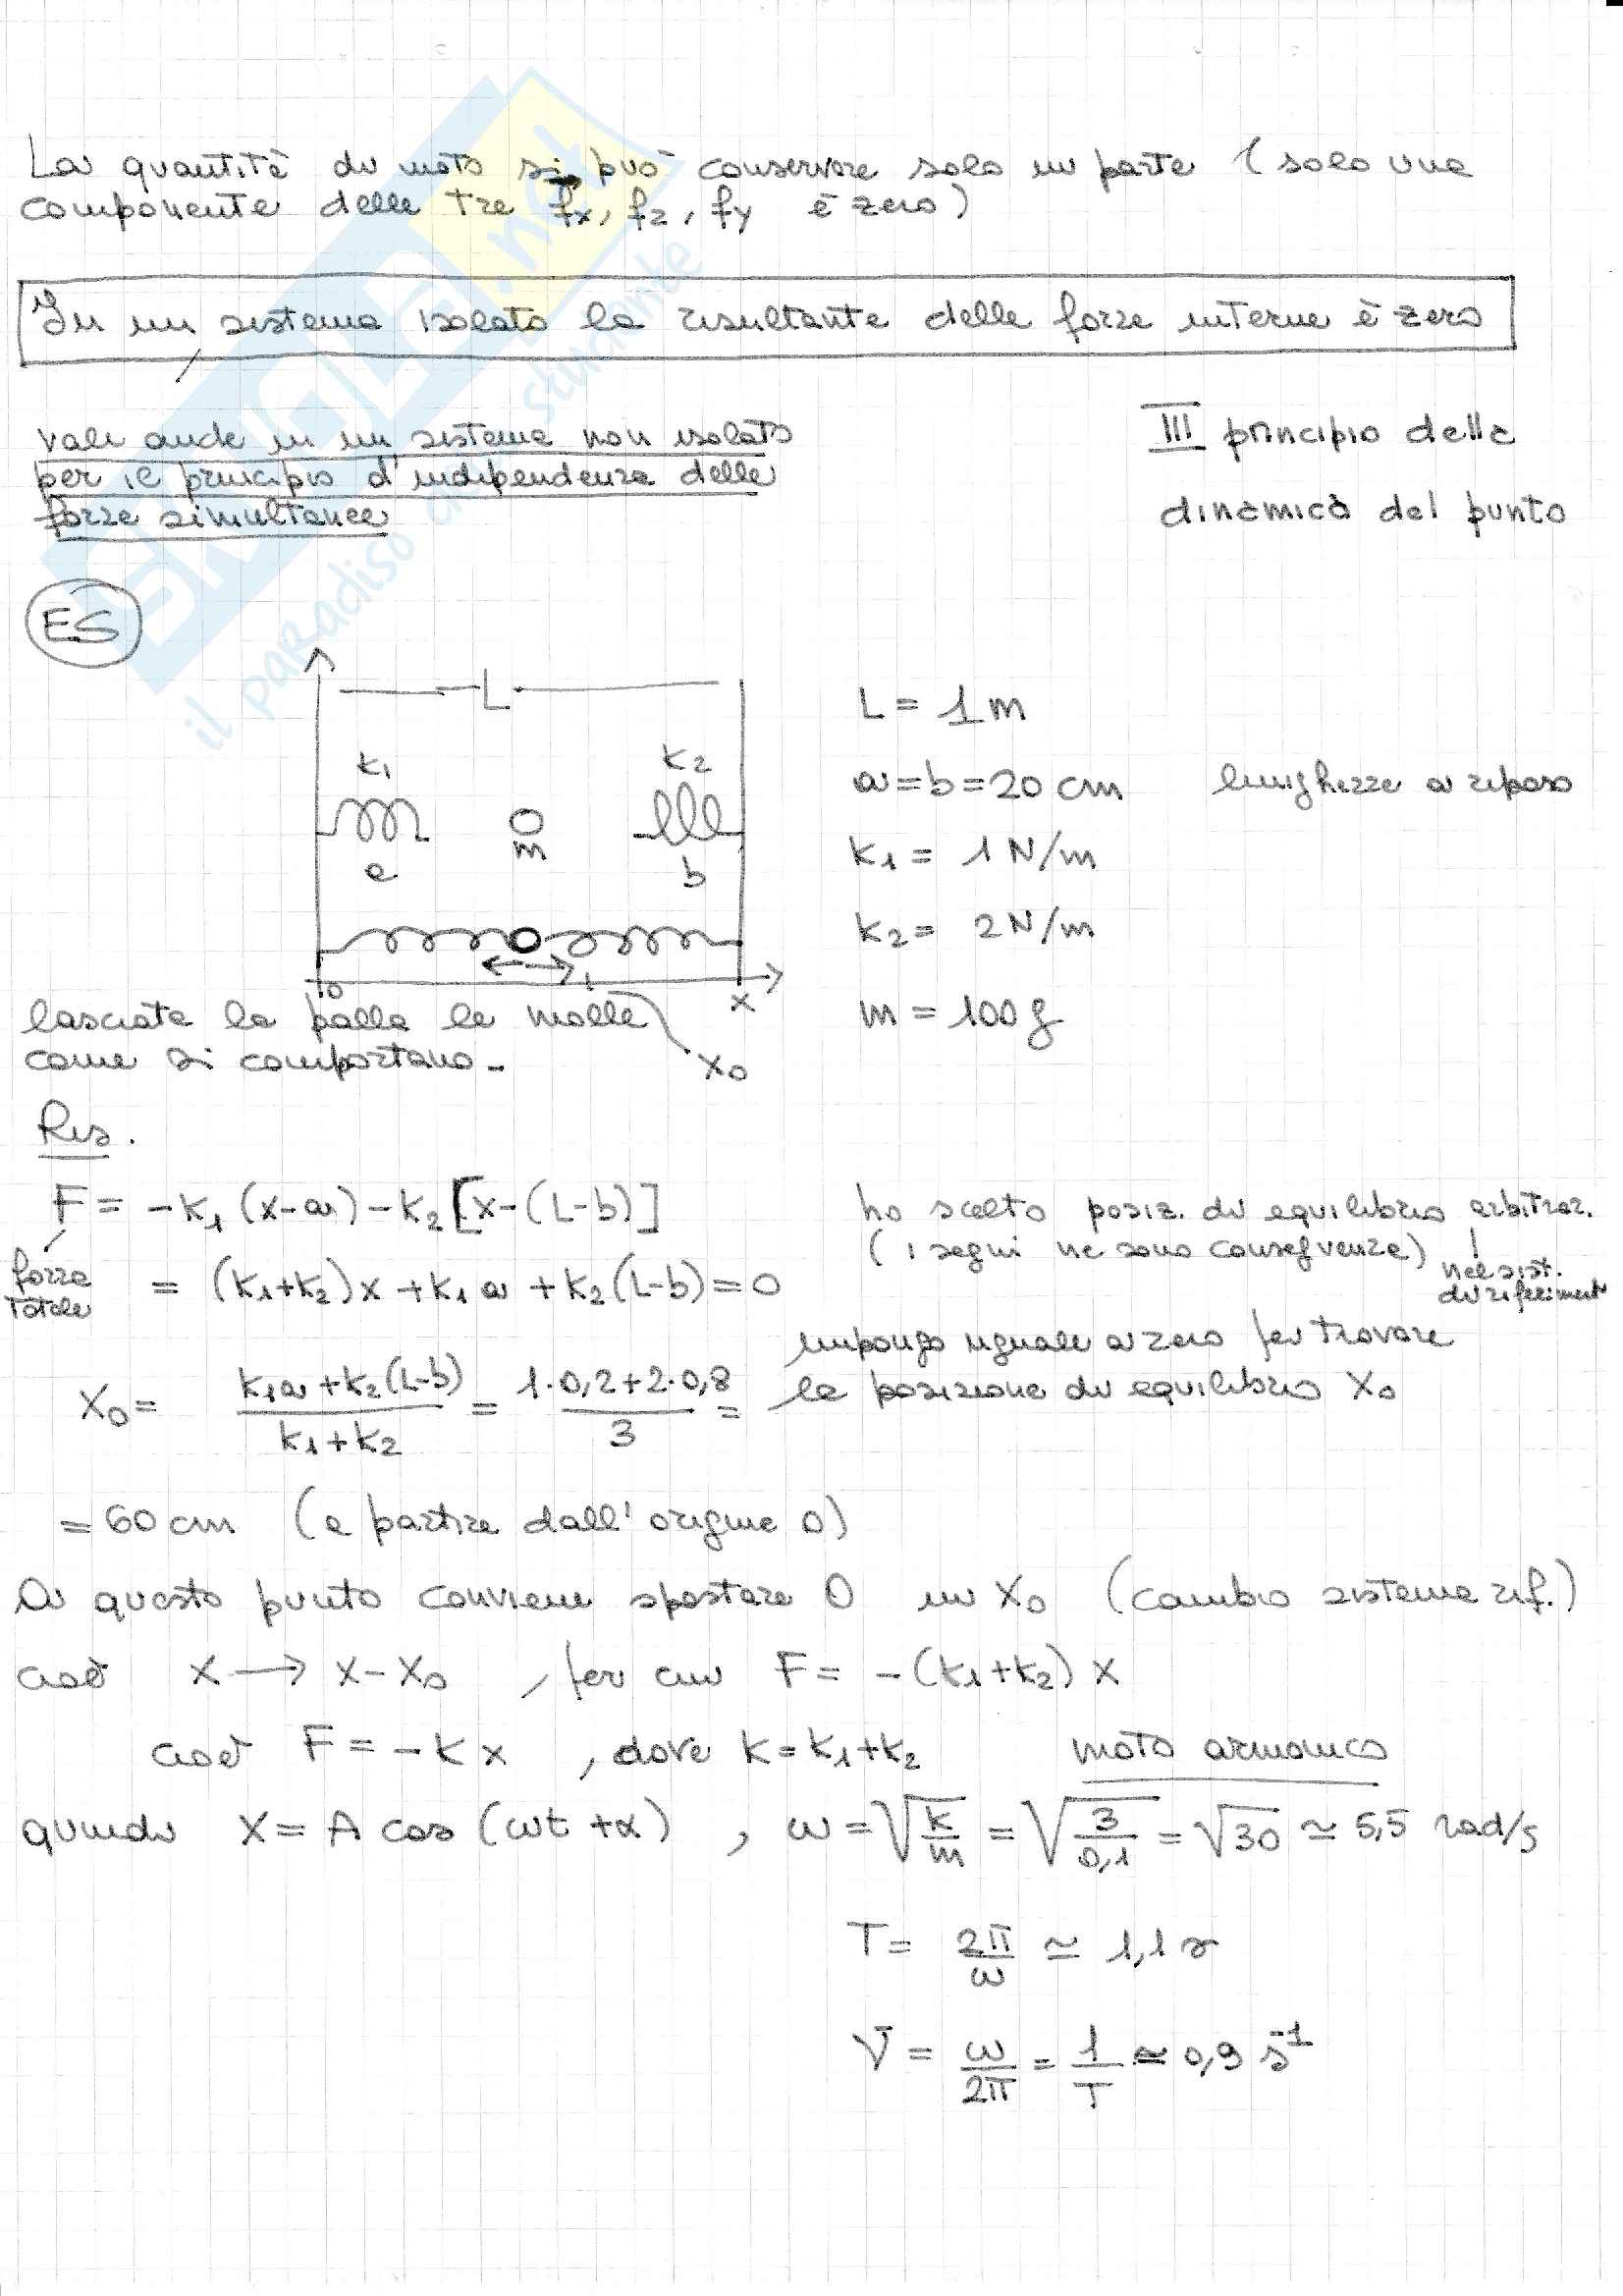 La quantità di moto si può conservare solo in parte (solo una
componente delle tre fx, fz, fy è zero)
In un sistema isolato la risultante delle forze interne è zero
vale anche in un sistema non isolato
per il principio d'indipendenza delle
forze simultanee
III principio della
dinamica del punto
ES
L
k1
k2
m
a
b
0
x
x0
L = 1 m
a = b = 20 cm lunghezze a riposo
k1 = 1 N/m
k2 = 2 N/m
m = 100 g
lasciata la palla le molle
come si comportano.
Ris.
F = -k1 (x-a) - k2 [x-(L-b)]
forza
totale
= (k1+k2)x + k1 a + k2(L-b) = 0
ho scelto posiz. di equilibrio arbitrar.
(i segni ne sono conseguenza)
nel sist.
di riferiment
impongo uguale a zero per trovare
la posizione di equilibrio x0
x0 = k1a + k2(L-b) / k1+k2 = 1·0,2+2·0,8 / 3 =
= 60 cm (a partire dall'origine 0)
A questo punto conviene spostare O in x0 (cambio sistema rif.)
cioè x → x-x0 , per cui F = -(k1+k2) x
cioè F = -kx , dove k = k1+k2 moto armonico
quindi x = A cos (ωt + α) , ω = √k/m = √3/0,1 = √30 ≃ 5,5 rad/s
T = 2π/ω ≃ 1,1 s
ν = ω/2π = 1/T ≃ 0,9 s⁻¹
SKUOLA.net
il paradiso dello studente